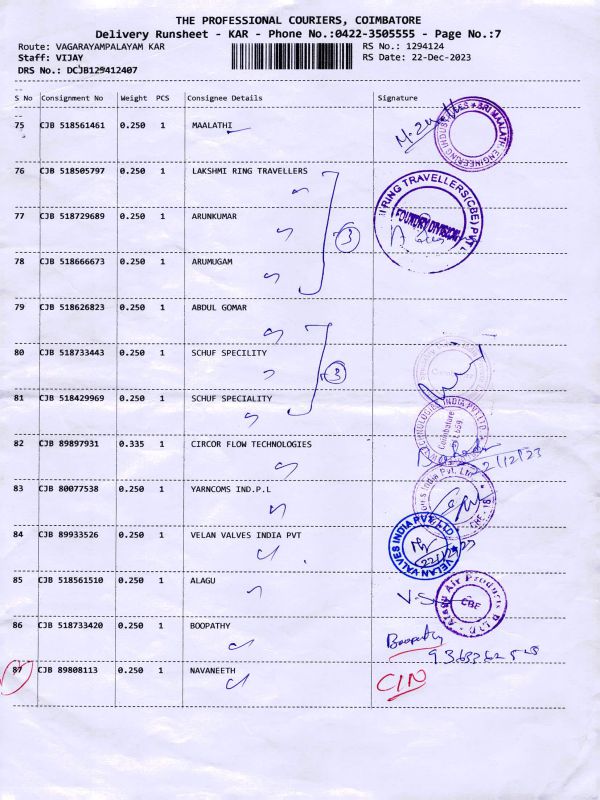 THE PROFESSIONAL COURIERS, COIMBATORE
Delivery Runsheet - KAR - Phone No.:0422-3505555 - Page No.:7
Route: VAGARAYAMPALAYAM KAR RS No.: 1294124
Staff: VIJAY RS Date: 22-Dec-2023
DRS No.: DCJB129412407
S No Consignment No Weight PCS Consignee Details Signature
75 CJB 518561461 0.250 1 MAALATHI
76 CJB 518505797 0.250 1 LAKSHMI RING TRAVELLERS
77 CJB 518729689 0.250 1 ARUNKUMAR
3
FOUNDRY DIVISION
78 CJB 518666673 0.250 1 ARUMUGAM
79 CJB 518626823 0.250 1 ABDUL GOMAR
80 CJB 518733443 0.250 1 SCHUF SPECILITY
3
81 CJB 518429969 0.250 1 SCHUF SPECIALITY
82 CJB 89897931 0.335 1 CIRCOR FLOW TECHNOLOGIES
22/12/23
83 CJB 80077538 0.250 1 YARNCOMS IND.P.L
84 CJB 89933526 0.250 1 VELAN VALVES INDIA PVT
VELAN VALVES INDIA PVT. LTD
85 CJB 518561510 0.250 1 ALAGU
Alagu Air Products
CBE
86 CJB 518733420 0.250 1 BOOPATHY
Boopathy
87 CJB 89808113 0.250 1 NAVANEETH
CIN